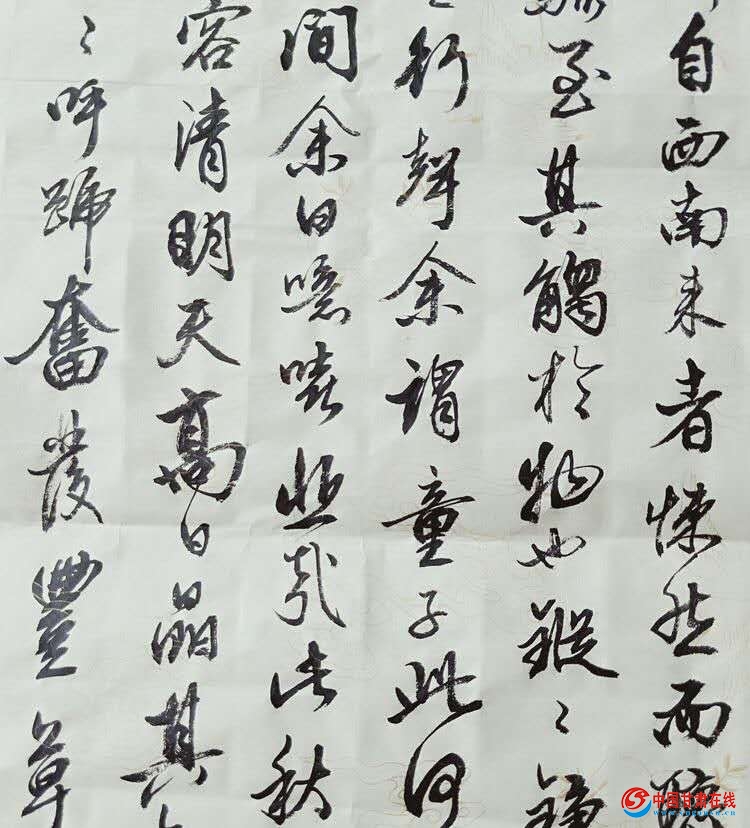 自西南来者悚然而
至其觸於物也鏦〻錚
行聲余謂童子此何
間余曰噫嘻悲哉此秋
容清明天高日晶其
〻呼號奮發豐草
中国甘肃在线